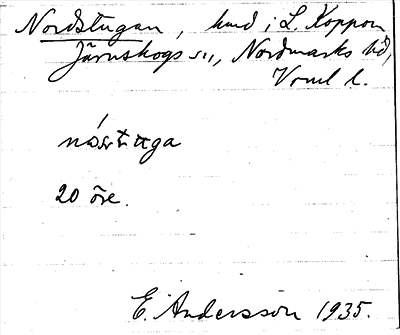 Nordstugan, hmd i L. Koppom
Järnskogs sn, Nordmarks hd,
Vrml l.
20 öre.
E. Andersson 1935.